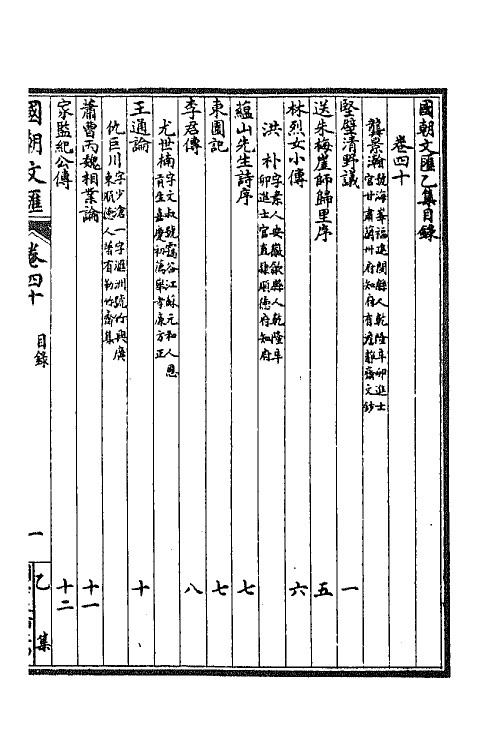 國朝文匯乙集目錄
卷四十
龔景瀚 號海峯福建閩縣人乾隆辛卯進士官甘肅蘭州府知府有澹靜齋文鈔
堅壁清野議 一
送朱梅崖師歸里序 五
林烈女小傳 六
洪朴 字素人安徽歙縣人乾隆辛卯進士官直隸順德府知府
蘊山先生詩序 七
東園記 七
李君傳 八
尤世楠 字文叔號 谷江蘇元和人恩貢生嘉慶初薦舉孝廉方正
王通論 十
仇巨川 字少滄一字滙洲號竹嶼廣東順德人著有勤竹齋集
蕭曹丙魏相業論 十一
家監紀公傳 十二
國朝文匯 卷四十 目錄 一 乙集